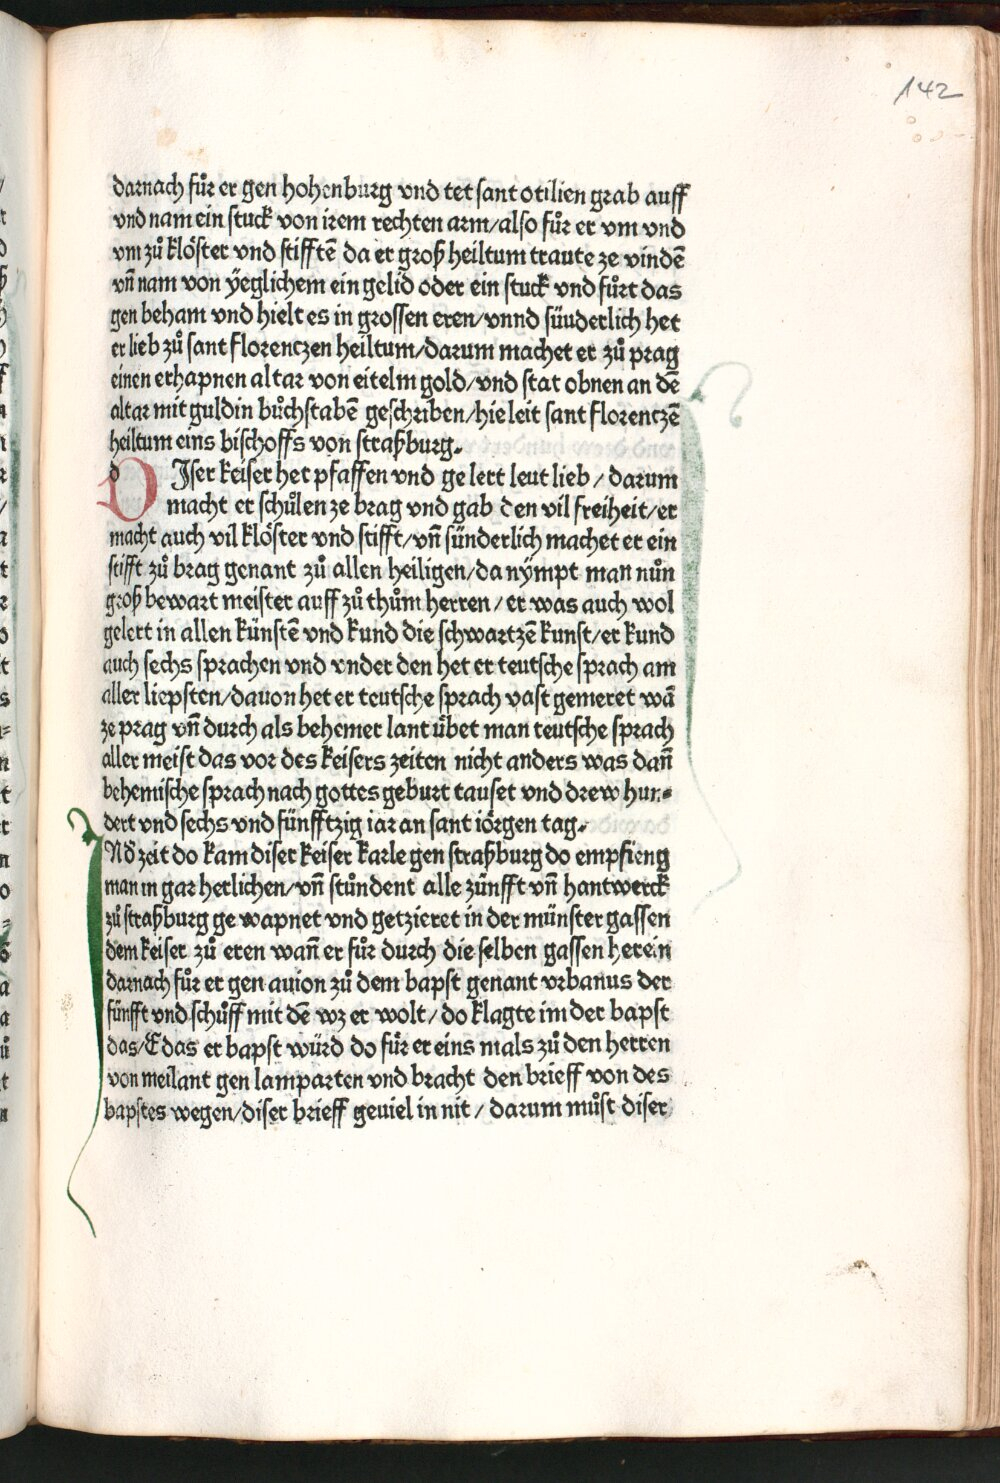 142
darnach fůr er gen hohenburg vnd tet sant otilien grab auff
vnd nam ein stuck von irem rechten arm/also fůr er vm vnd
vm zů klöster vnd stifftē da er groß heiltum traute ze vindē
vn̄ nam von ÿeglichem ein gelid oder ein stuck vnd fůrt das
gen beham vnd hielt es in grossen eren/vnnd süuderlich het
er lieb zů sant florentzen heiltum/darum machet er zů prag
einen erhapnen altar von eitelm gold/vnd stat obnen an dē
altar mit guldin bůchstabē geschriben/hie leit sant florentzē
heiltum eins bischoffs von straßburg.
DIser keiser het pfaffen vnd gelert leut lieb/darum
macht er schůlen ze brag vnd gab den vil freiheit/er
macht auch vil klöster vnd stifft/vn̄ sünderlich machet er ein
stifft zů brag genant zů allen heiligen/da nÿmpt man nůn
groß bewart meister auff zů thům herren/er was auch wol
gelert in allen künstē vnd kund die schwartzē kunst/er kund
auch sechs sprachen vnd vnder den het er teutsche sprach am
aller liepsten/dauon het er teutsche sprach vast gemeret wā
ze prag vn̄ durch als behemer lant übet man teutsche sprach
aller meist das vor des keisers zeiten nicht anders was dan̄
behemische sprach nach gottes geburt tauset vnd drew hun-
dert vnd sechs vnd fünfftzig iar an sant iörgen tag.
IN d̄ zeit do kam diser keiser karle gen straßburg do empfieng
man in gar herlichen/vn̄ stůndent alle zünfft vn̄ hantwerck
zů straßburg gewapnet vnd getzieret in der münster gassen
dem keiser zů eren wan̄ er fůr durch die selben gassen herein
darnach fůr er gen auion zů dem bapst genant vrbanus der
fünfft vnd schůff mit dē wz er wolt/do klagte im der bapst
das/E das er bapst würd do fůr er eins mals zů den herren
von meilant gen lamparten vnd bracht den brieff von des
bapstes wegen/diser brieff geuiel in nit/darum můst diser